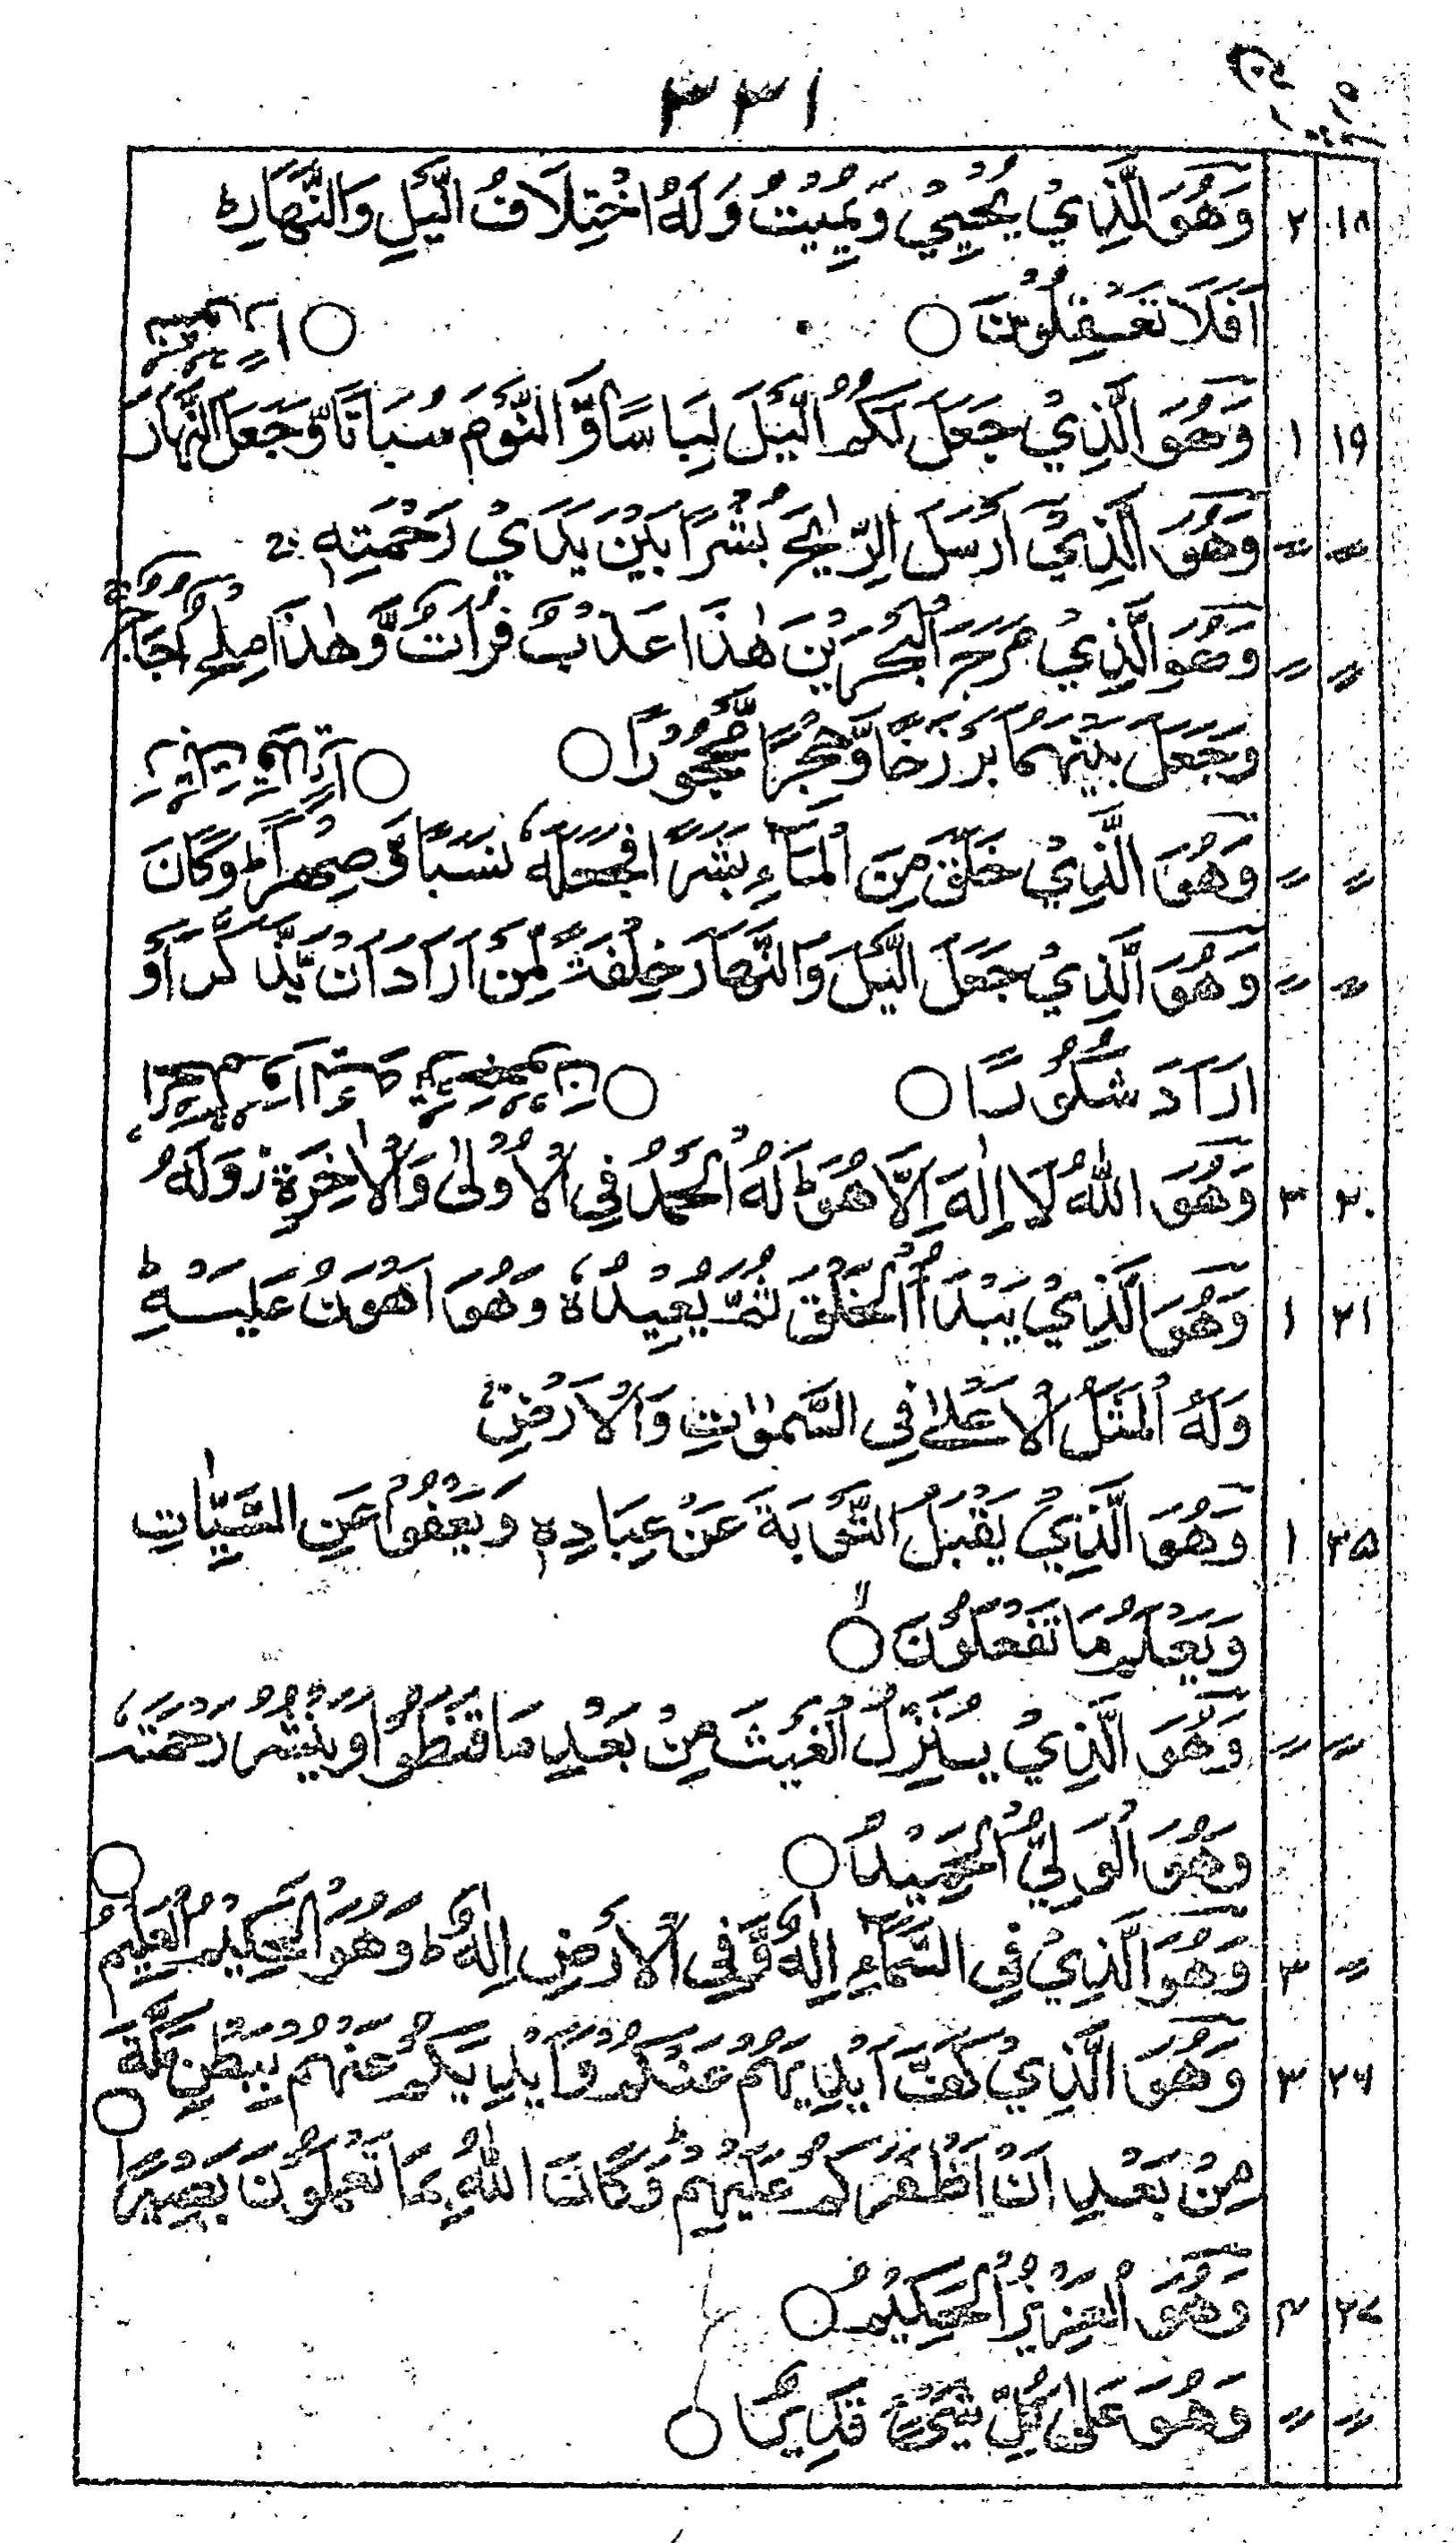 ۳۳۱
۱۸ ۲ وَهُوَ الَّذِيْ يُحْيِيْ وَيُمِيْتُ وَلَهُ اخْتِلَافُ الَّيْلِ وَالنَّهَارِ ط
اَفَلَا تَعْقِلُوْنَ ○ ○
۱۹ ۱ وَهُوَ الَّذِيْ جَعَلَ لَكُمُ الَّيْلَ لِبَاسًا وَّالنَّوْمَ سُبَاتًا وَّجَعَلَ النَّهَارَ
〃 〃 وَهُوَ الَّذِيْٓ اَرْسَلَ الرِّيٰحَ بُشْرًا بَيْنَ يَدَيْ رَحْمَتِهٖ ج
〃 〃 وَهُوَ الَّذِيْ مَرَجَ الْبَحْرَيْنِ هٰذَا عَذْبٌ فُرَاتٌ وَّهٰذَا مِلْحٌ اُجَاجٌ ج
وَجَعَلَ بَيْنَهُمَا بَرْزَخًا وَّحِجْرًا مَّحْجُوْرًا ○ ○
〃 〃 وَهُوَ الَّذِيْ خَلَقَ مِنَ الْمَآءِ بَشَرًا فَجَعَلَهٗ نَسَبًا وَّصِهْرًا ط وَكَانَ
〃 〃 وَهُوَ الَّذِيْ جَعَلَ الَّيْلَ وَالنَّهَارَ خِلْفَةً لِّمَنْ اَرَادَ اَنْ يَّذَّكَّرَ اَوْ
اَرَادَ شُكُوْرًا ○ ○
۲۰ ۳ وَهُوَ اللّٰهُ لَآ اِلٰهَ اِلَّا هُوَ ط لَهُ الْحَمْدُ فِي الْاُوْلٰى وَالْاٰخِرَةِ ز وَلَهُ
۲۱ ۱ وَهُوَ الَّذِيْ يَبْدَأُ الْخَلْقَ ثُمَّ يُعِيْدُهٗ وَهُوَ اَهْوَنُ عَلَيْهِ ط
وَلَهُ الْمَثَلُ الْاَعْلٰى فِي السَّمٰوٰتِ وَالْاَرْضِ ج
۲۵ ۱ وَهُوَ الَّذِيْ يَقْبَلُ التَّوْبَةَ عَنْ عِبَادِهٖ وَيَعْفُوْا عَنِ السَّيِّاٰتِ
وَيَعْلَمُ مَا تَفْعَلُوْنَ ○
〃 〃 وَهُوَ الَّذِيْ يُنَزِّلُ الْغَيْثَ مِنْ بَعْدِ مَا قَنَطُوْا وَيَنْشُرُ رَحْمَتَهٗ
وَهُوَ الْوَلِيُّ الْحَمِيْدُ ○
〃 ۳ وَهُوَ الَّذِيْ فِي السَّمَآءِ اِلٰهٌ وَّفِي الْاَرْضِ اِلٰهٌ ط وَهُوَ الْحَكِيْمُ الْعَلِيْمُ ○
۲۶ ۳ وَهُوَ الَّذِيْ كَفَّ اَيْدِيَهُمْ عَنْكُمْ وَاَيْدِيَكُمْ عَنْهُمْ بِبَطْنِ مَكَّةَ
مِنْ بَعْدِ اَنْ اَظْفَرَكُمْ عَلَيْهِمْ ط وَكَانَ اللّٰهُ بِمَا تَعْمَلُوْنَ بَصِيْرًا ○
۲۷ ۴ وَهُوَ الْعَزِيْزُ الْحَكِيْمُ ○
〃 〃 وَهُوَ عَلٰى كُلِّ شَيْءٍ قَدِيْرٌ ○